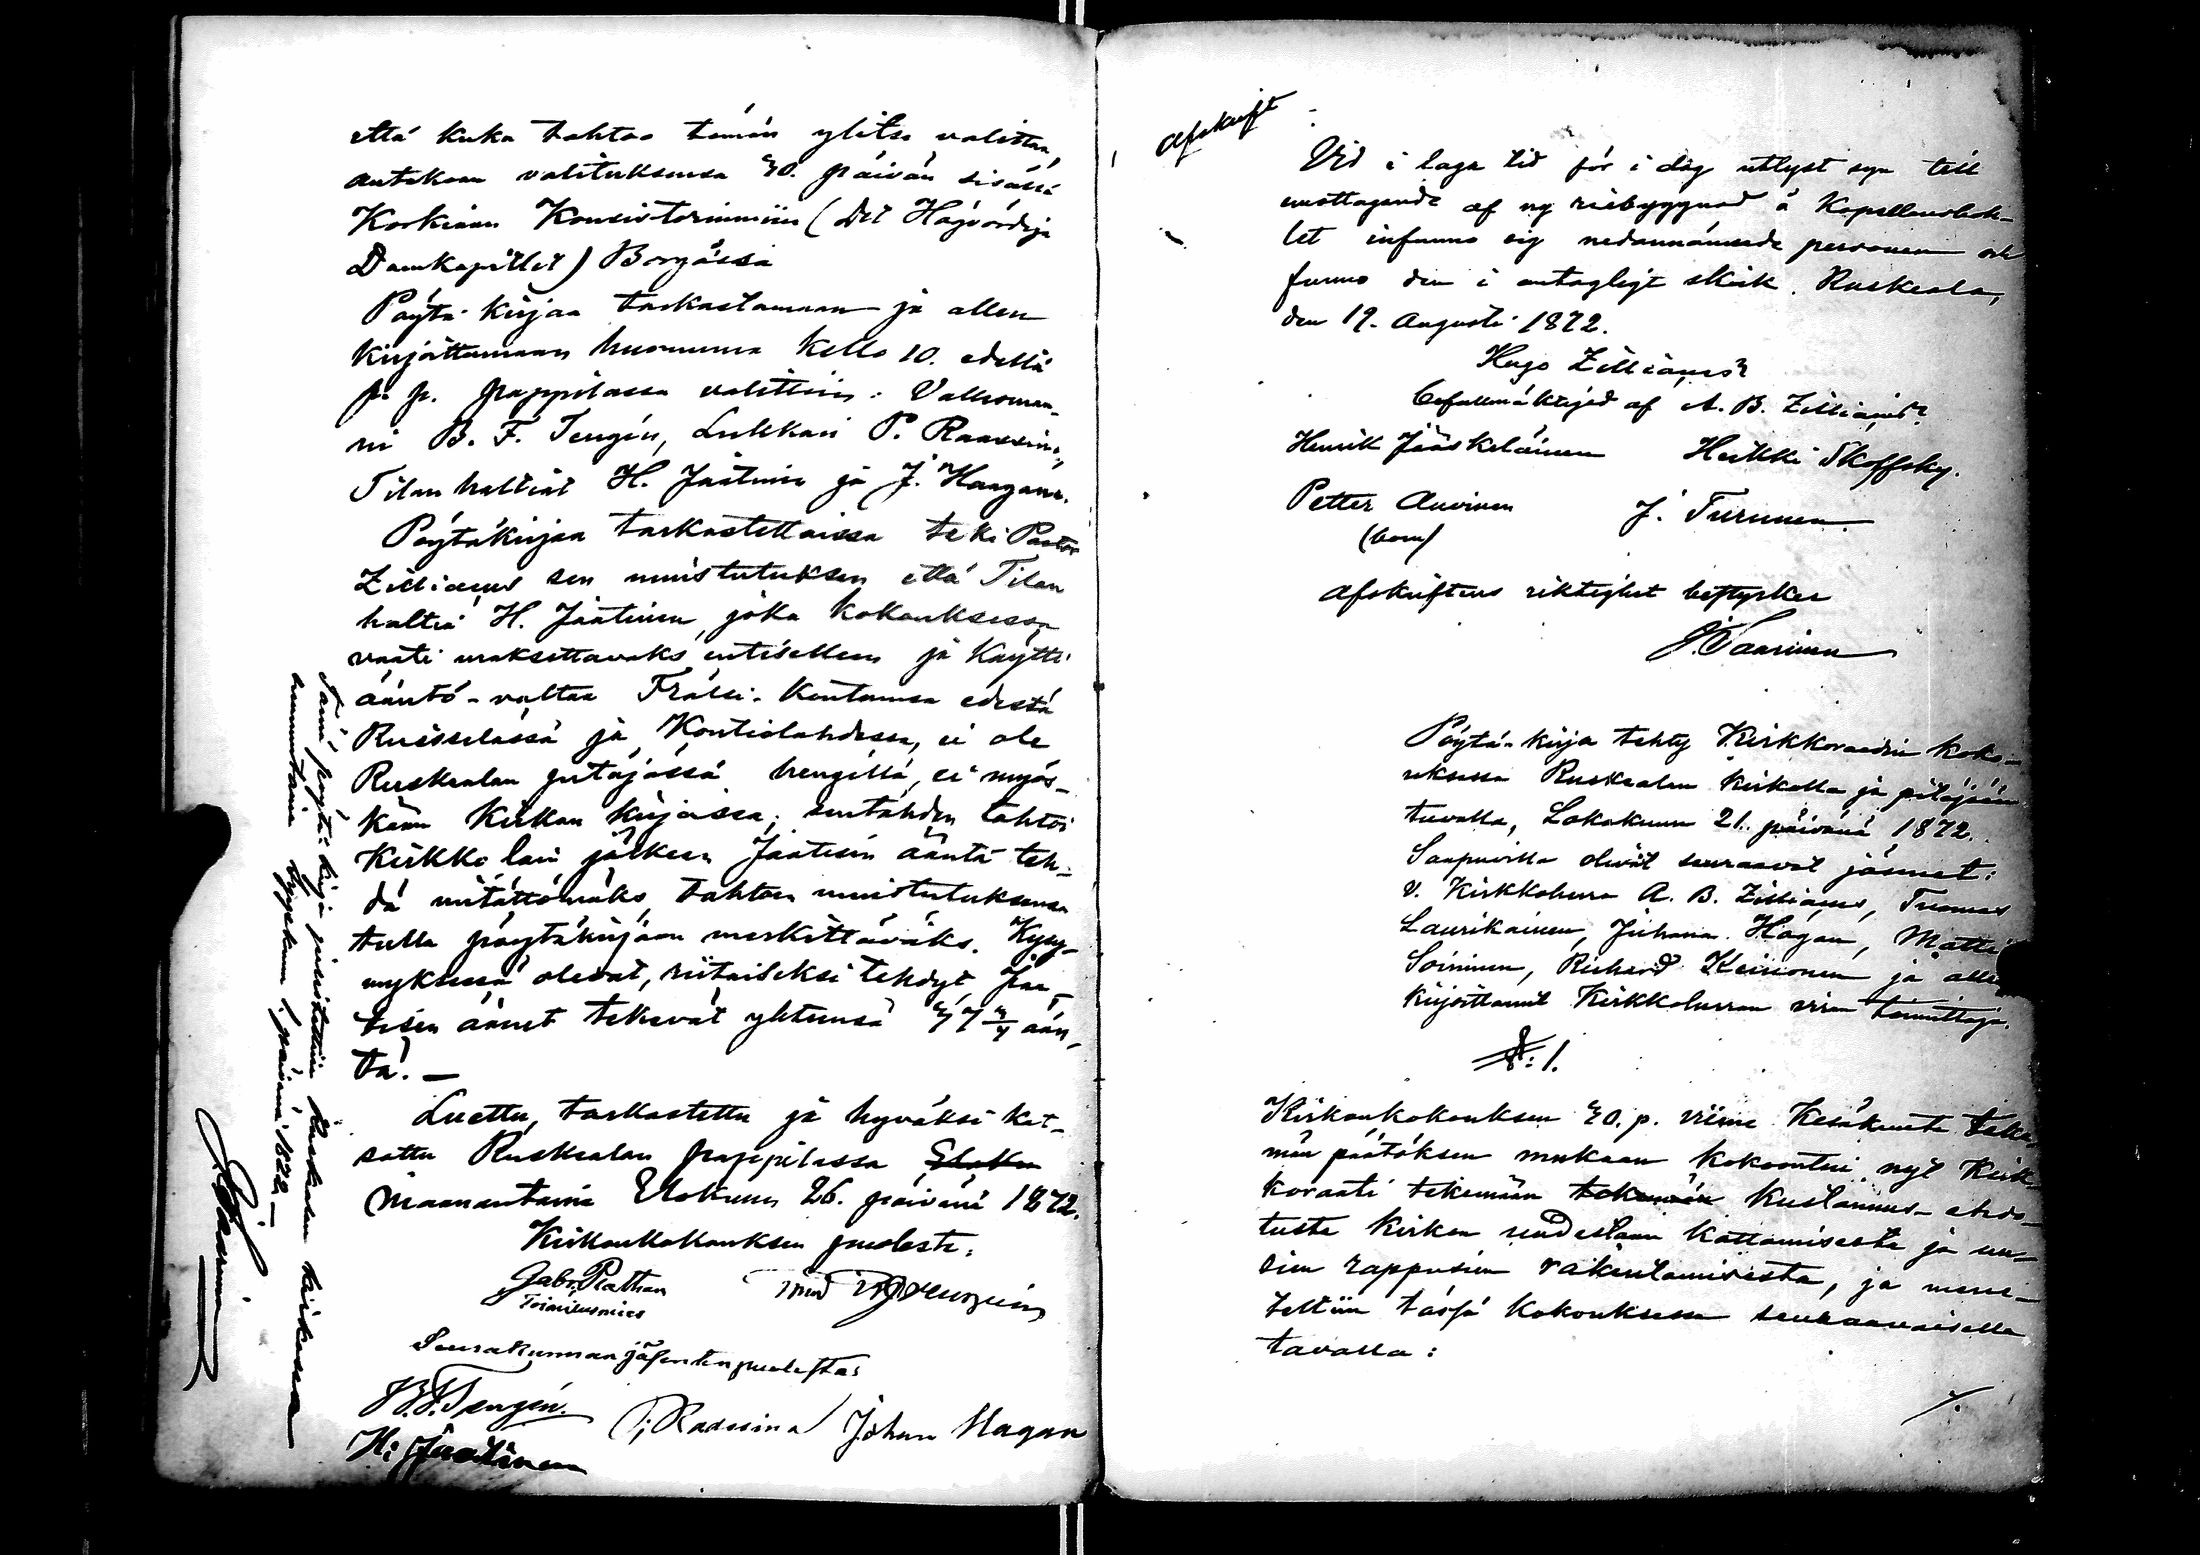 että kuka tahtoo tämän ylitse valittaa,
antakoon valituksensa 30. päivän sisässä
Korkiaan Konsistoriummiin (Det Högvördige
Domkapitlet) Borgåssa
Pöytä-kirjaa tarkastamaan ja allen
kirjoittamaan huomenna kello 10. edellä
p. p. pappilassa valittiin: Vallesman-
ni B. F. Tengén, Lukkari P. Raassina,
Tilanhaltiat H. Jäätinen ja J. Haagana.
Pöytäkirjaa tarkastettaissa teki Pastor
Zilliacus sen muistutuksen että Tilan
haltia H. Jäätinen, joka kokouksessa
vaati maksettavaks entisellens ja käytti
ääntö-valtaa Frälsi-kontunsa edestä
Ruisselässä ja Kontiolahdessa, ei ole
Ruskealan pitäjässä hengillä, ei myös-
kään kirkon kirjoissa; sentähden tahtoi
Kirkko lain jälkeen Jäätisen ääntä teh-
dä mitättömäks, tahtoen muistutuksensa
tulla pöytäkirjaan merkittäväks. Kysy-
myksessä olevat, riitaiseksi tehdyt Jää-
tisen äänet tekevät yhteensä ään-
tä. —
Luettu, tarkastettu ja hyväksi kat-
sottu Ruskealan pappilassa Elokuu
Maanantaina Elokuun 26. päivänä 1872.
Kirkonkokouksen puolesta:
Gabr. Rathan
Toimitusmies
Seurakunnan jäsenten puolesta:
B. F. Tengén. P; Raassina Johan Hagan
H: Jäätinen
Tämä pöytä-kirja julistettiin Ruskealan kirkossa
sunnuntaina Syyskuun 1. päivänä 1872. —
J. Saarinen
Afskrift
Vid i laga tid för i dag utlyst syn till
emottagande af ny riebyggnad å Kapellansbohl-
let infunno sig nedannämnde personer och
funno den i antagligt skick. Ruskeala,
den 19. Augusti 1872.
Hugo Zilliacus
befullmäktigad af A. B. Zilliacus
Henrik Jääskeläinen Heikki Skoffsky.
Petter Auvinen J. Turunen
(bom)
Afskriftens riktighet bestyrker
J. Saarinen
Pöytä-kirja tehty Kirkkoraadin koko-
uksessa Ruskealan kirkolla ja pitäjään
tuvalla, Lokakuun 21. päivänä 1872.
Saapuvilla olivat seuraavat jäsenet:
v. Kirkkoherra A. B. Zilliacus, Tuomas
Laurikainen, Juhana Hagan, Matti
Soininen, Richard Keinonen ja allen
kirjoittanut Kirkkoherran viran toimittaja.
§: 1.
Kirkonkokouksen 30. p. viime Kesäkuuta teke-
män päätöksen mukaan kokoontui nyt Kirk-
koraati tekemään tekemään kustannus-ehdo-
tusta kirkon uudestaan kattamisesta ja uu-
sien rappusien rakentamisesta, ja mene-
teltiin tässä kokouksessa seuraavaisella
tavalla: